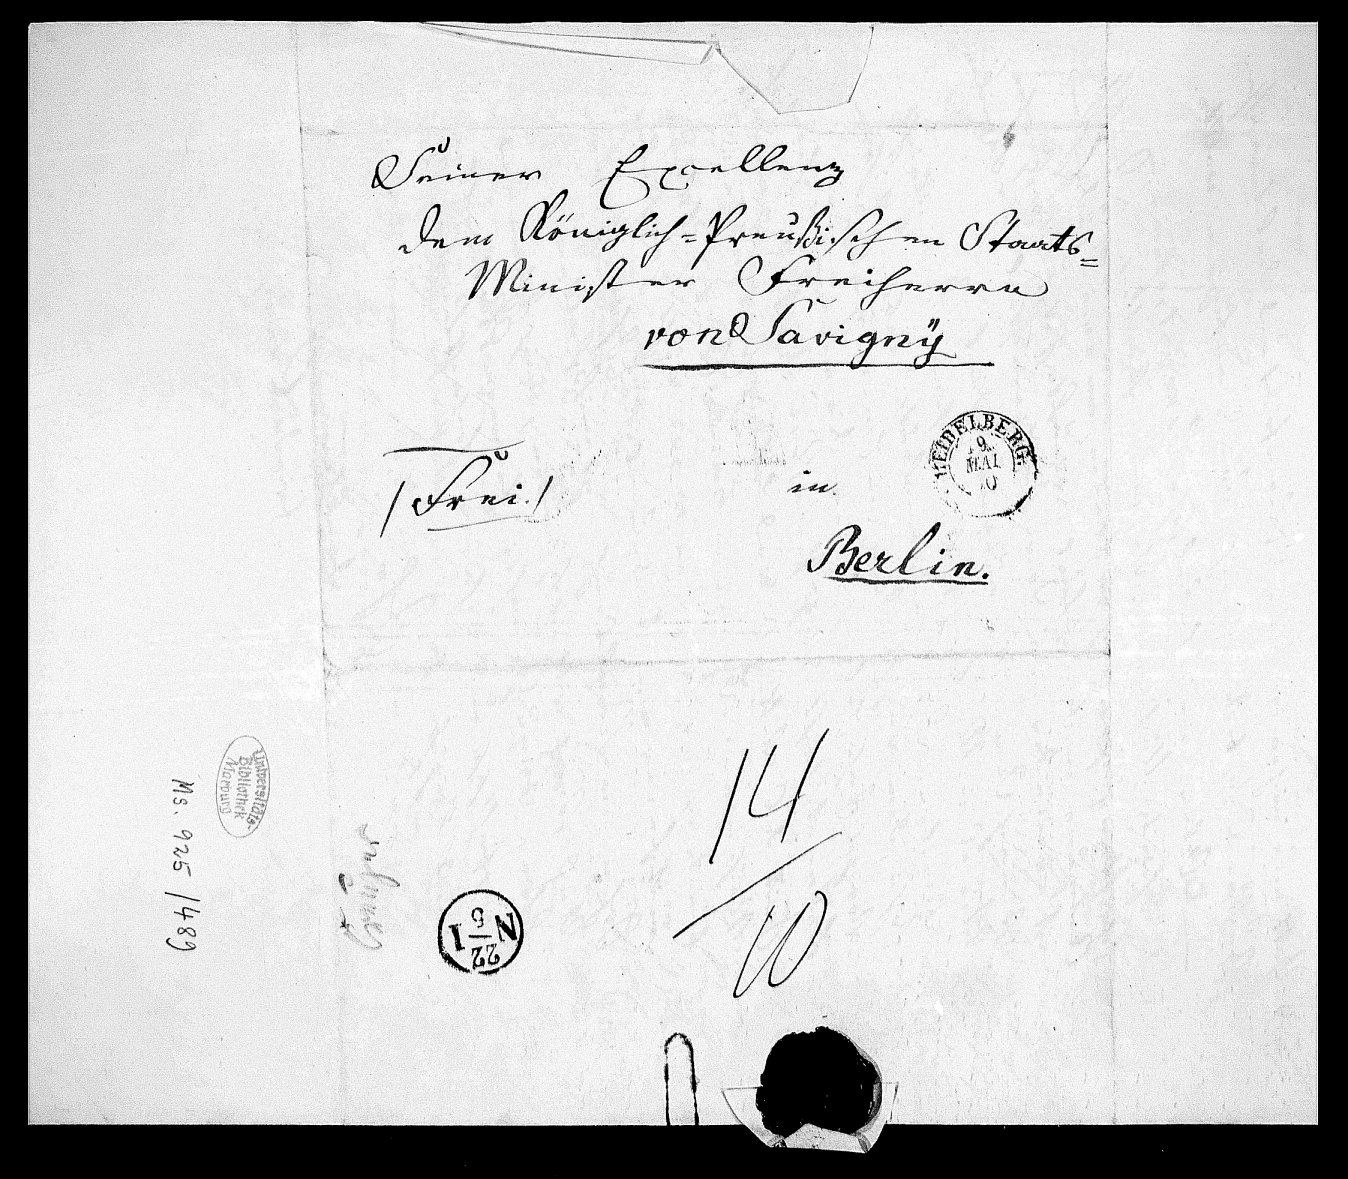 Seiner Excellenz
dem Königlich-Preußischen Staats=
Minister Freiherrn
von Savigny
/Frei./
in
Berlin.
HEIDELBERG.
9.
MAI
14
10
N 22/5 I
Universitäts-
Bibliothek
Marburg
Ms. 925/489